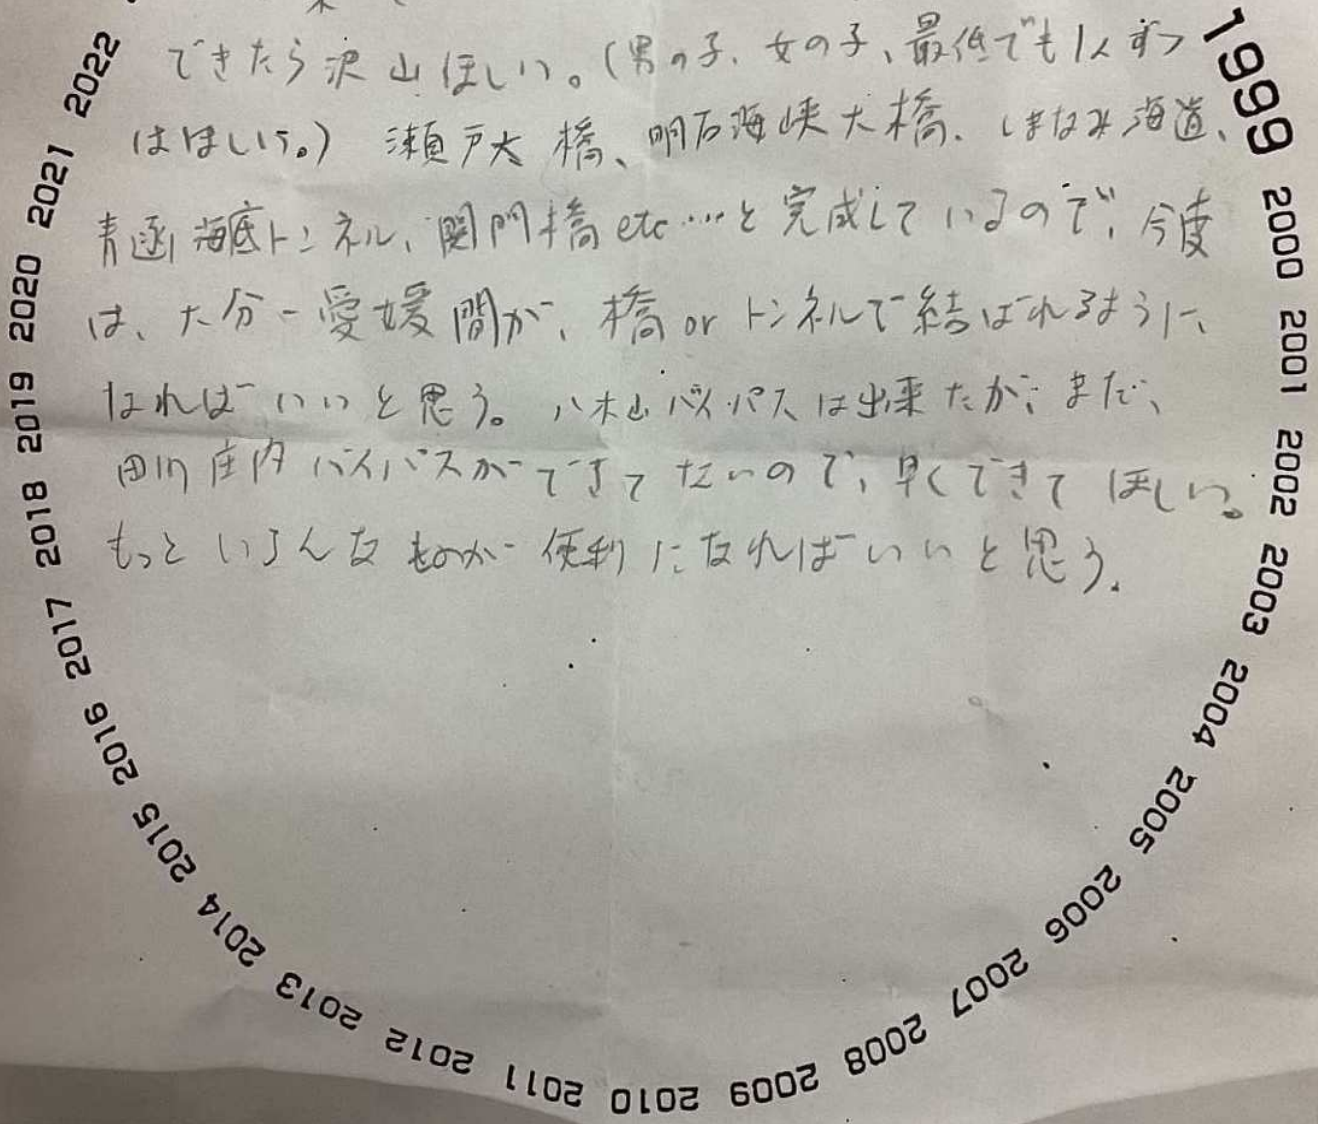 できたら沢山ほしい。(男の子、女の子、最低でも1人ずつ
はほしい。) 瀬戸大橋、明石海峡大橋、しまなみ海道、
青函海底トンネル、関門橋etc…と完成しているので、今度
は、大分-愛媛間が、橋orトンネルで結ばれるように、
なればいいと思う。八木山バイパスは出来たが、まだ、
田川庄内バイパスができてないので、早くできてほしい。
もっといろんなものが便利になればいいと思う。
1999
2000
2001
2002
2003
2004
2005
2006
2007
2008
2009
2010
2011
2012
2013
2014
2015
2016
2017
2018
2019
2020
2021
2022